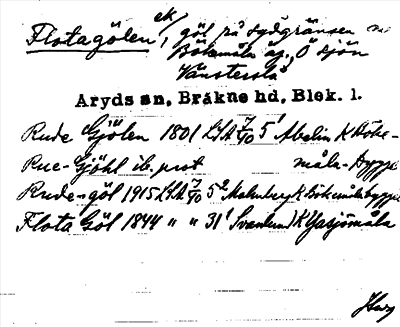 Flotagölen, ek, göl på sydgränsen
Bökemåla äg., Ö sjön
Vänstersla
Aryds sn, Bräkne hd, Blek. l.
Rude Gjölen 1801 LSA 7/10 5¹ Abelin K Böke-
Rue-Gjöhl ib. prot måla-bygge
Rude-göl 1915 LSA 7/10 5² Malmberg K Bökemålabygge
Flota Göl 1844 " " 31¹ Svanlund K Yasjömåla